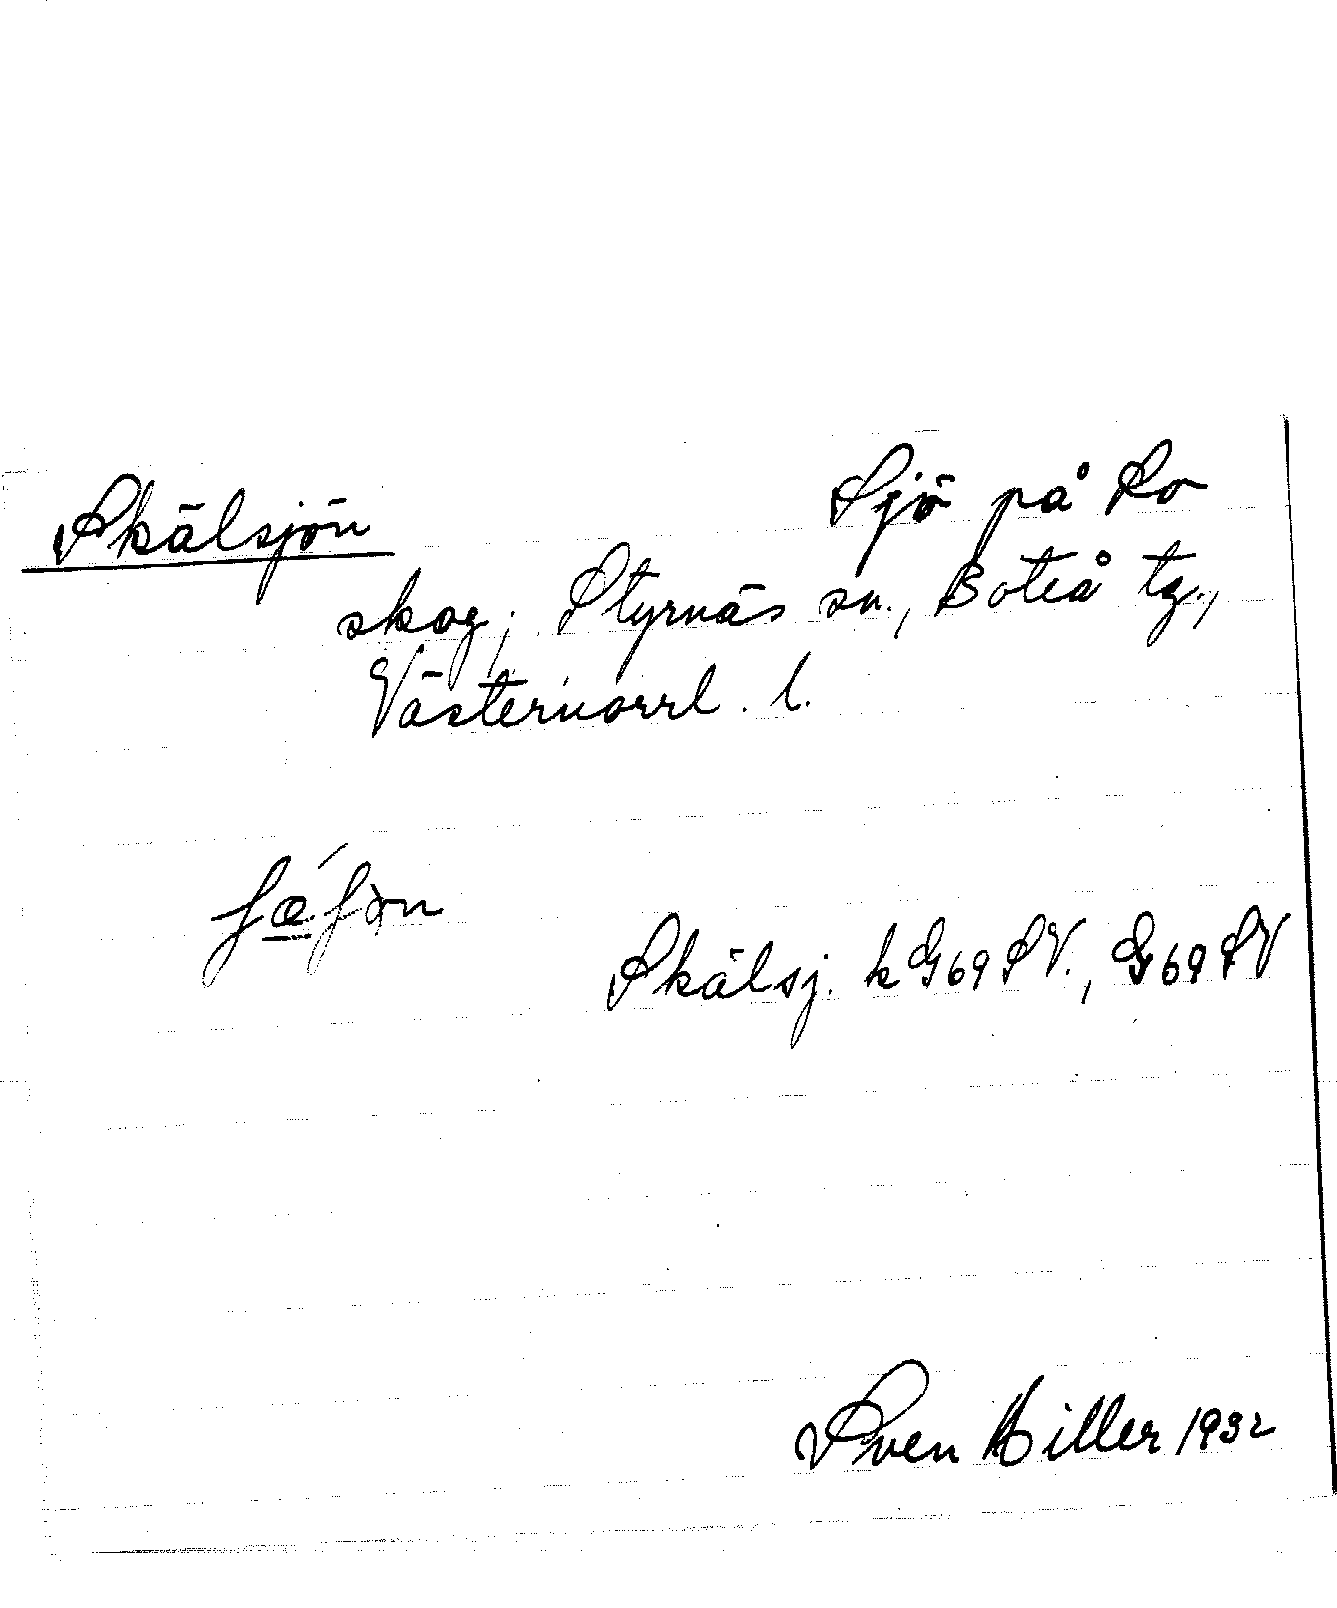 Skälsjön
Sjö på So
skog; Styrnäs sn., Boteå tg.,
Västernorrl. l.
Skälsj. k G69SV., G69SV
Sven Hiller 1932